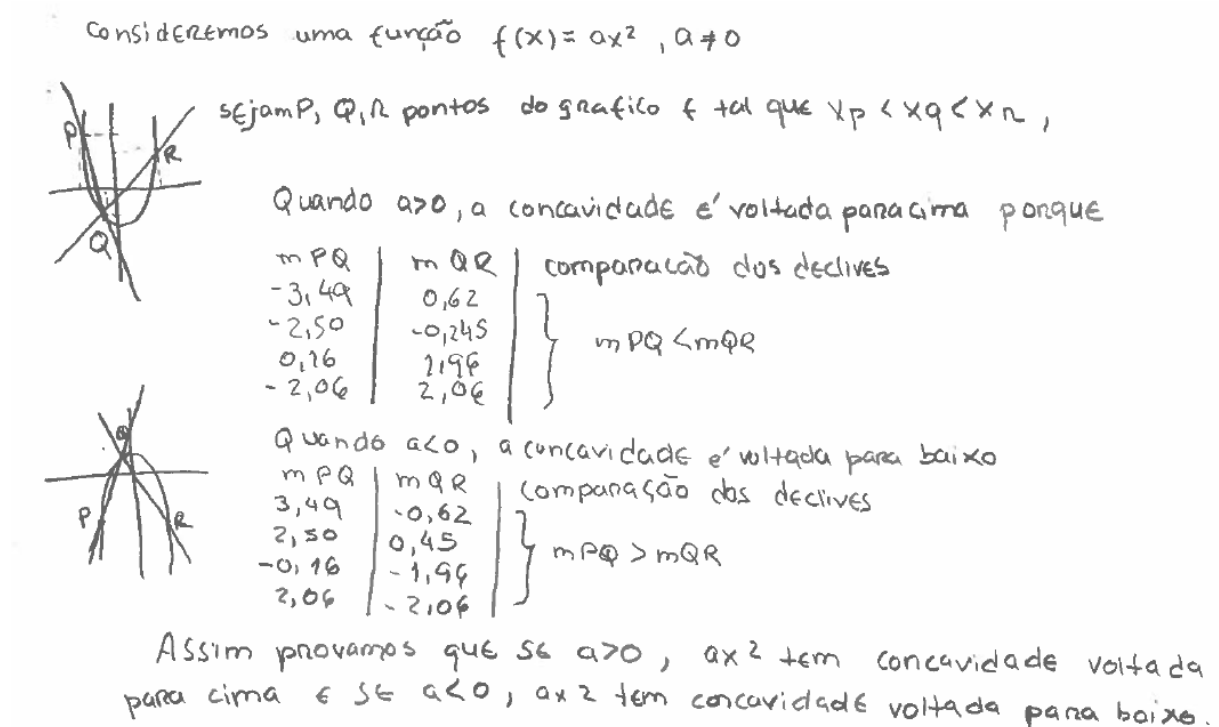 Consideremos uma função f(x) = ax², a ≠ 0
sejam P, Q, R pontos do grafico f tal que xp < xq < xr,
P
R
Q
Quando a>0, a concavidade é voltada para cima porque
m PQ | m QR | comparacão dos declives
-3,49 | 0,62
-2,50 | -0,245
0,16 | 1,96
-2,06 | 2,06
} mPQ < mQR
Quando a<0, a concavidade é voltada para baixo
Q
P
R
m PQ | m QR | comparação dos declives
3,49 | -0,62
2,50 | 0,45
-0,16 | -1,96
2,06 | -2,06
} mPQ > mQR
Assim provamos que se a>0, ax² tem concavidade voltada
para cima e se a<0, ax2 tem concavidade voltada para baixo.